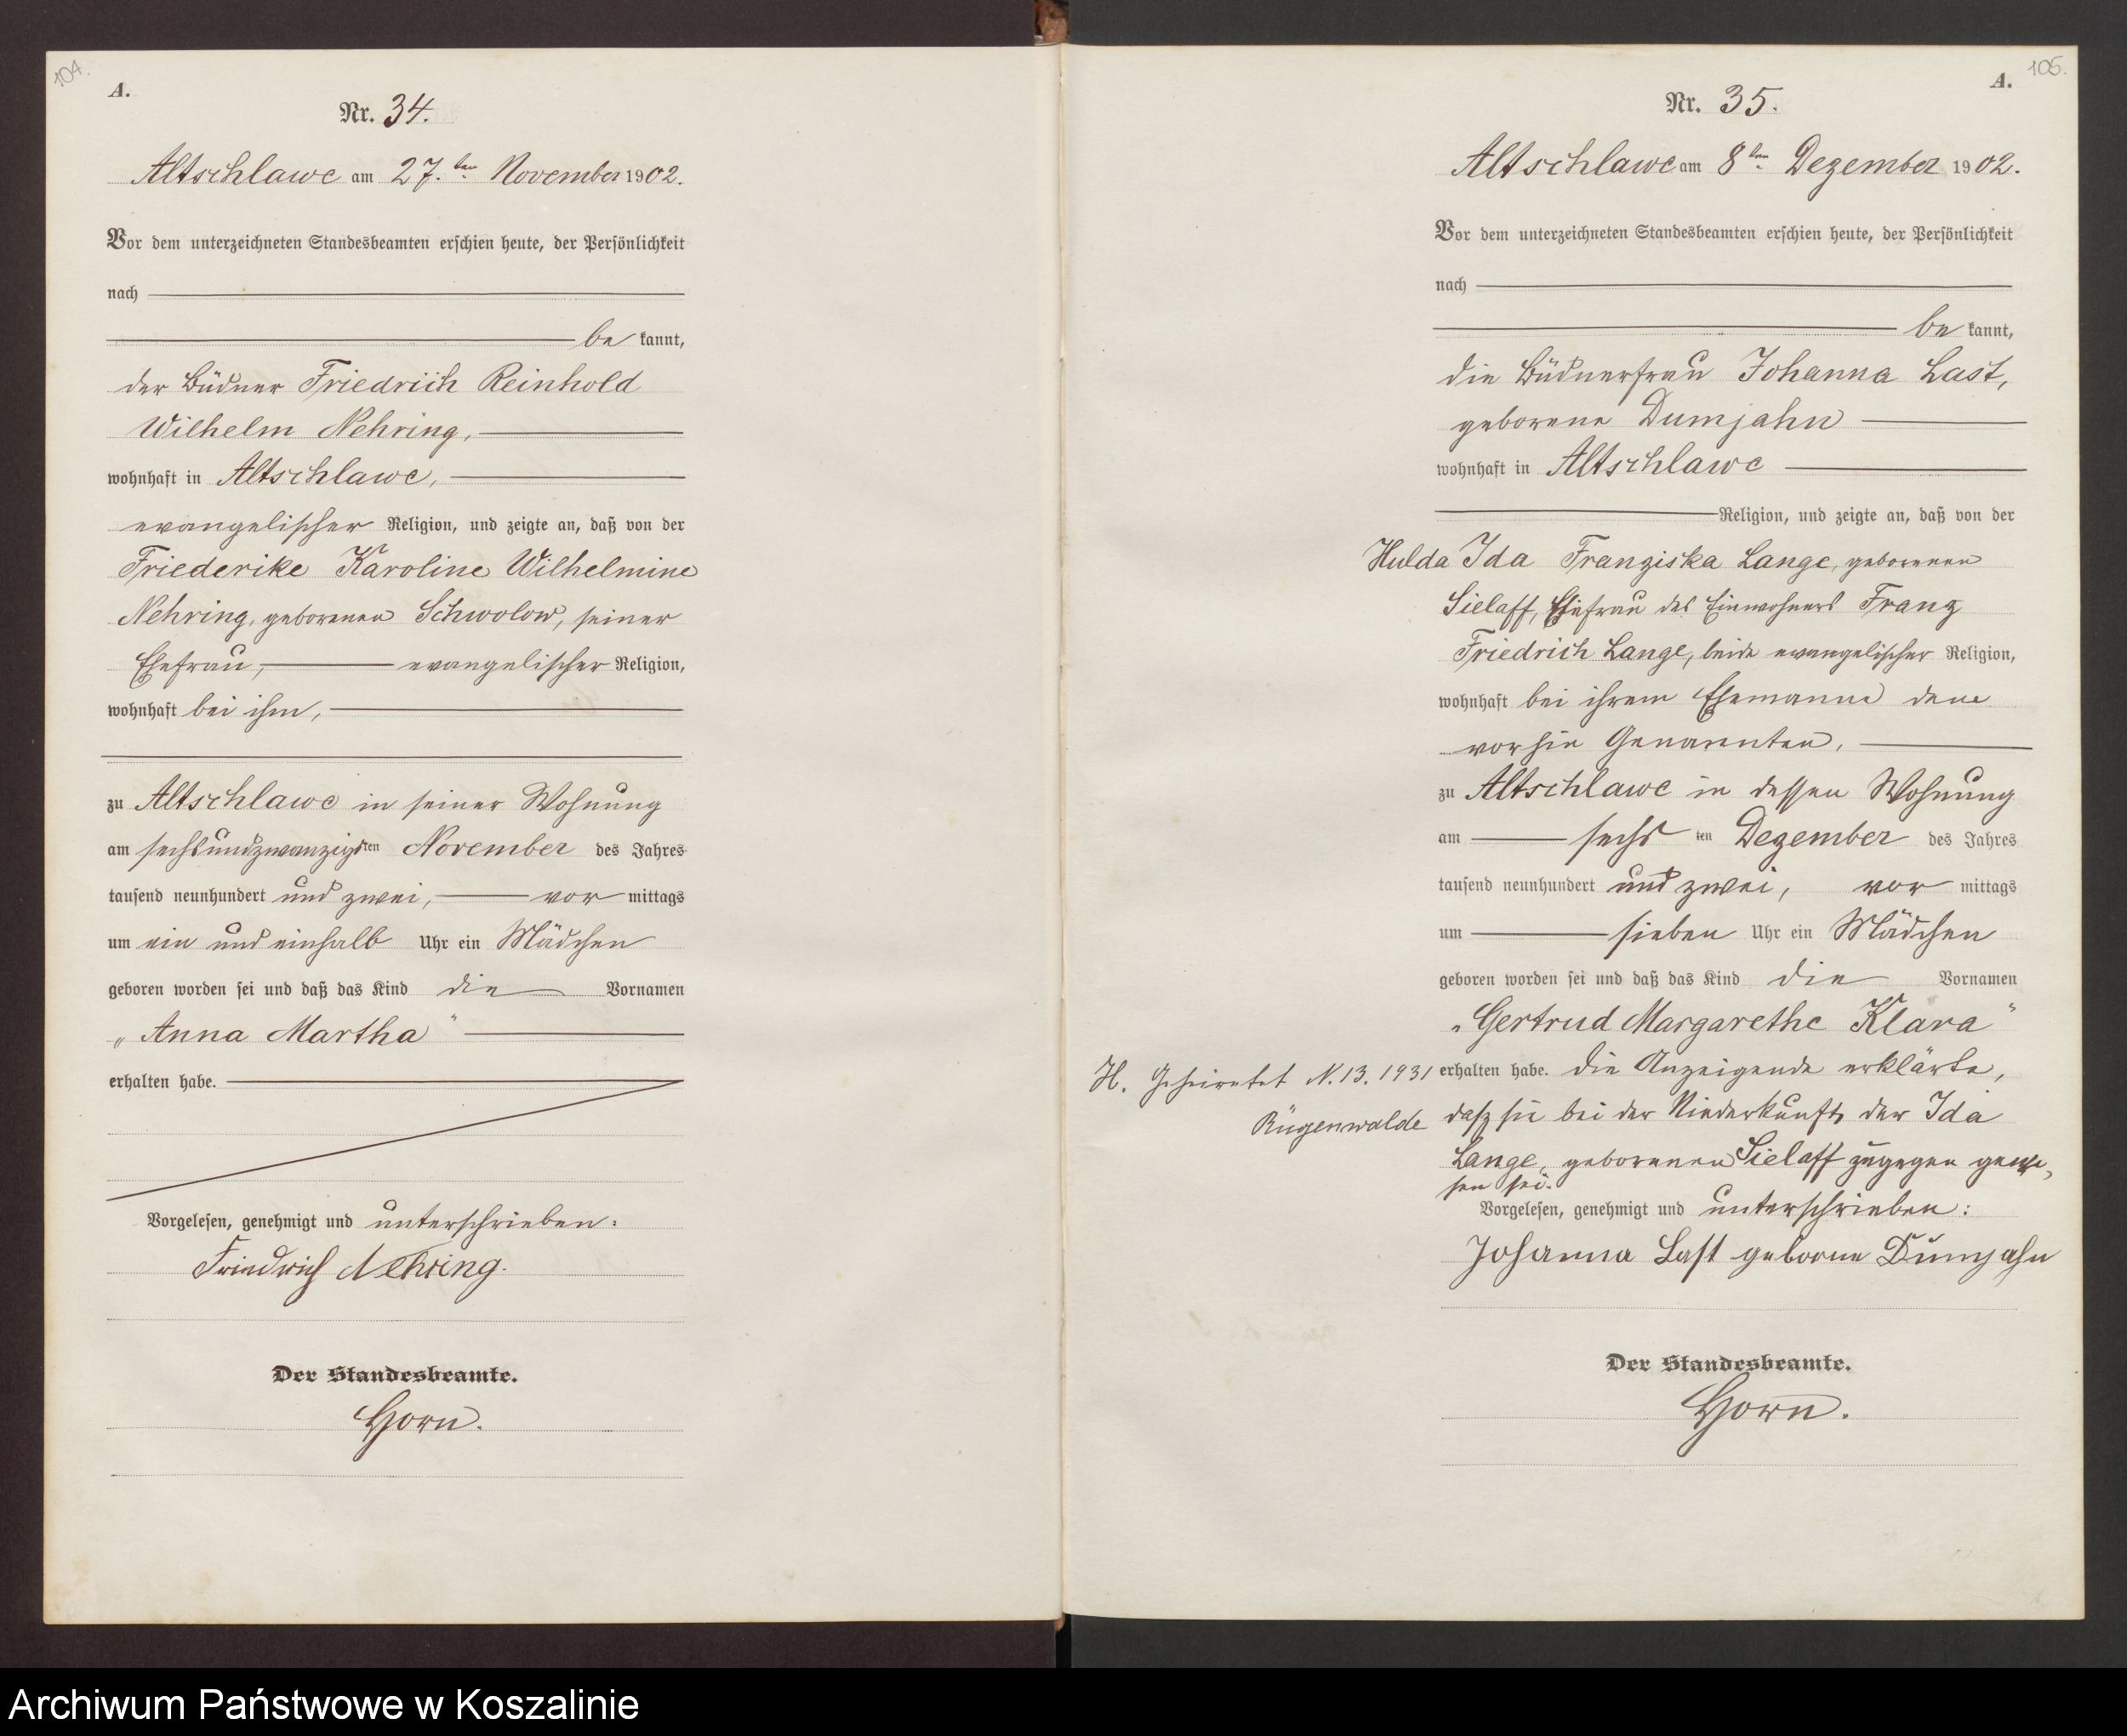 104.
A.
Nr. 34.
Altschlawe am 27.ten November 1902.
Vor dem unterzeichneten Standesbeamten erschien heute, der Persönlichkeit
nach
be kannt,
der Büdner Friedrich Reinhold
Wilhelm Nehring,
wohnhaft in Altschlawe,
evangelischer Religion, und zeigte an, daß von der
Friederike Karoline Wilhelmine
Nehring, geborenen Schwolow, seiner
Ehefrau, evangelischer Religion,
wohnhaft bei ihm,
zu Altschlawe in seiner Wohnung
am sechsundzwanzigsten November des Jahres
tausend neunhundert und zwei, vor mittags
um ein und einhalb Uhr ein Mädchen
geboren worden sei und daß das Kind die Vornamen
„Anna Martha"
erhalten habe.
Vorgelesen, genehmigt und unterschrieben:
Friedrich Nehring.
Der Standesbeamte.
Horn.
105.
A.
Nr. 35.
Altschlawe am 8ten Dezember 1902.
Vor dem unterzeichneten Standesbeamten erschien heute, der Persönlichkeit
nach
be kannt,
die Büdnerfrau Johanna Last,
geborene Dumjahn
wohnhaft in Altschlawe
Religion, und zeigte an, daß von der
Hulda Ida Franziska Lange, geborenen
Sielaff, Ehefrau des Einwohners Franz
Friedrich Lange, beide evangelischer Religion,
wohnhaft bei ihrem Ehemanne dem
vorhin Genannten,
zu Altschlawe in dessen Wohnung
am sechsten Dezember des Jahres
tausend neunhundert und zwei, vor mittags
um sieben Uhr ein Mädchen
geboren worden sei und daß das Kind die Vornamen
„Gertrud Margarethe Klara"
erhalten habe. Die Anzeigende erklärte,
daß sie bei der Niederkunft der Ida
Lange, geborenen Sielaff zugegen gewe-
sen sei.
H. Geheiratet N. 13. 1931
Rügenwalde
Vorgelesen, genehmigt und unterschrieben:
Johanna Last geborne Dumjahn
Der Standesbeamte.
Horn.
Archiwum Państwowe w Koszalinie